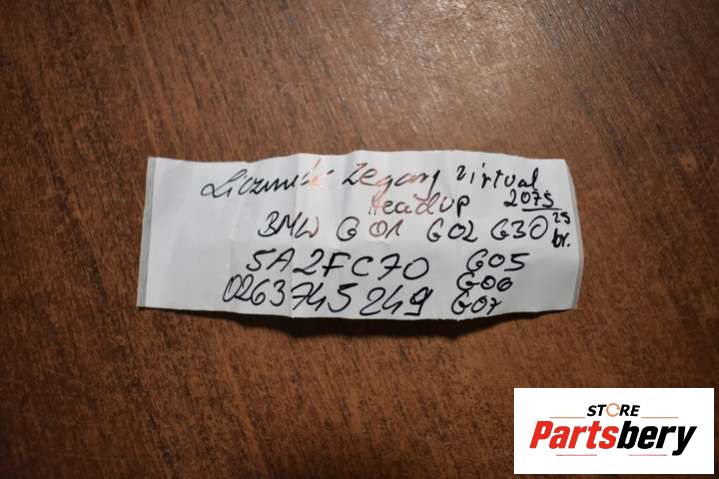 Licznik Zegary Virtual
Head Up 2075
BMW G01 G02 G30 25 br.
5A2FC70 G05
G06
0263745249 G07
STORE
Partsbery